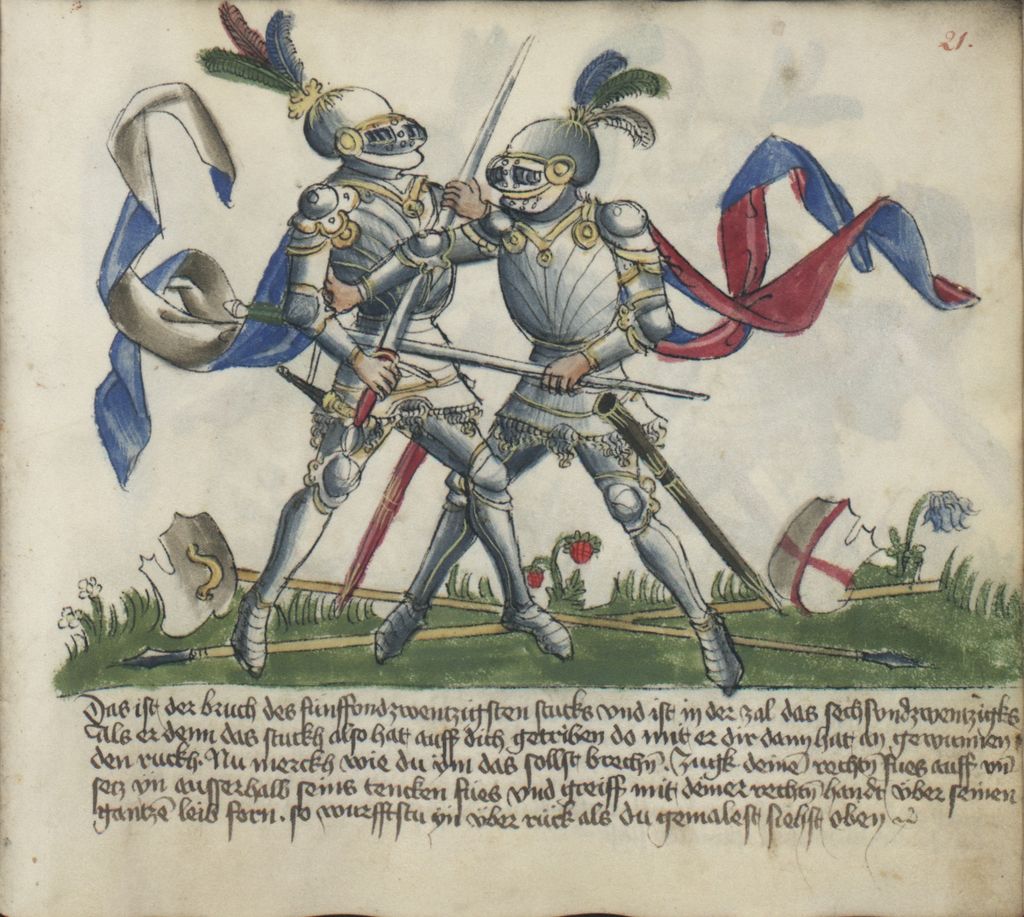 21.
Das ist der bruch des fünffondzwentzigsten stucks vnd ist in der zal das sechsvndzwentzigst
als er denn das stuckh also hat auff dich getriben do mit er dir dann hat an gewunnen
den ruckh. Nu merckh wie du ym das sollst brechn̄. Zugk deinē rechtn̄ fues auff vn̄
secz yn ausserhalb seins tencken fues vnd greiff mit deiner rechtn̄ handt vber seinen
gantzē leib forn. so wurfftstu yn vber rück als du gemalest siehst oben